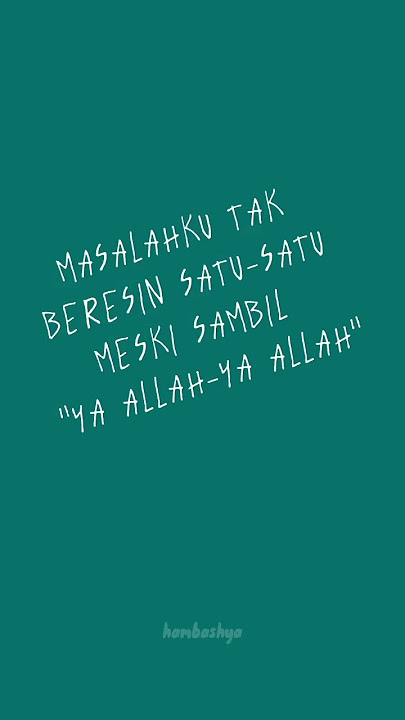 MASALAHKU TAK
BERESIN SATU-SATU
MESKI SAMBIL
"YA ALLAH-YA ALLAH"
hambashya